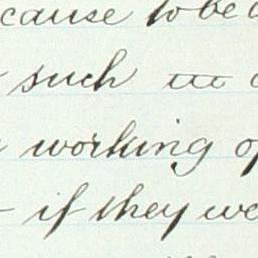 cause to be
such
working of
if they we